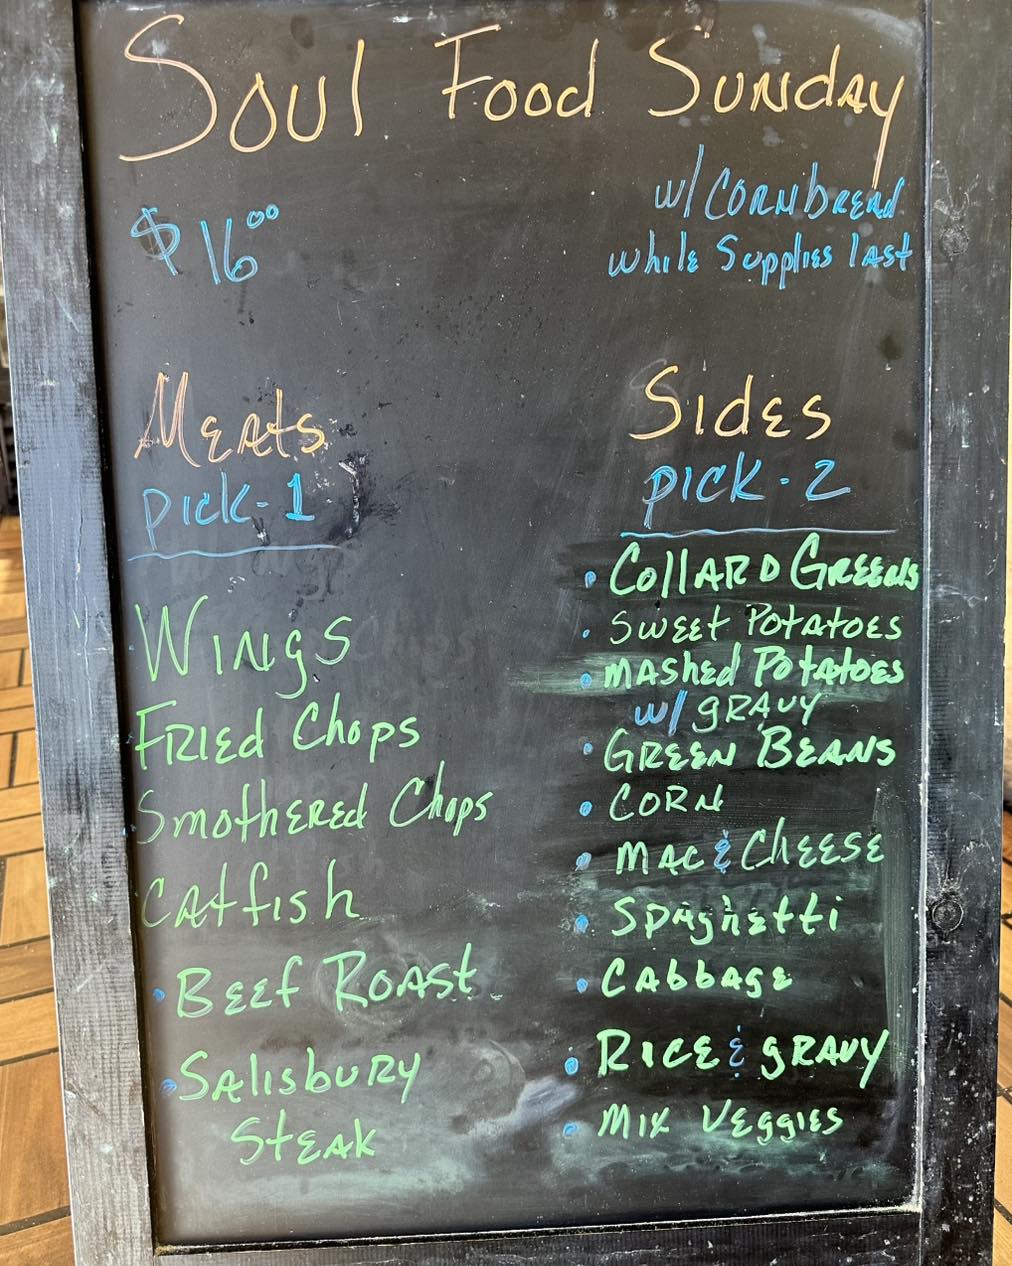 Soul Food Sunday
$16⁰⁰
w/ Cornbread
while Supplies last
Meats
pick-1
Wings
Fried Chops
Smothered Chops
Catfish
• Beef Roast
• Salisbury
Steak
Sides
pick-2
• Collard Greens
• Sweet Potatoes
• Mashed Potatoes
w/ gravy
• Green Beans
• Corn
• Mac & Cheese
• Spaghetti
• Cabbage
• Rice & gravy
• Mix Veggies